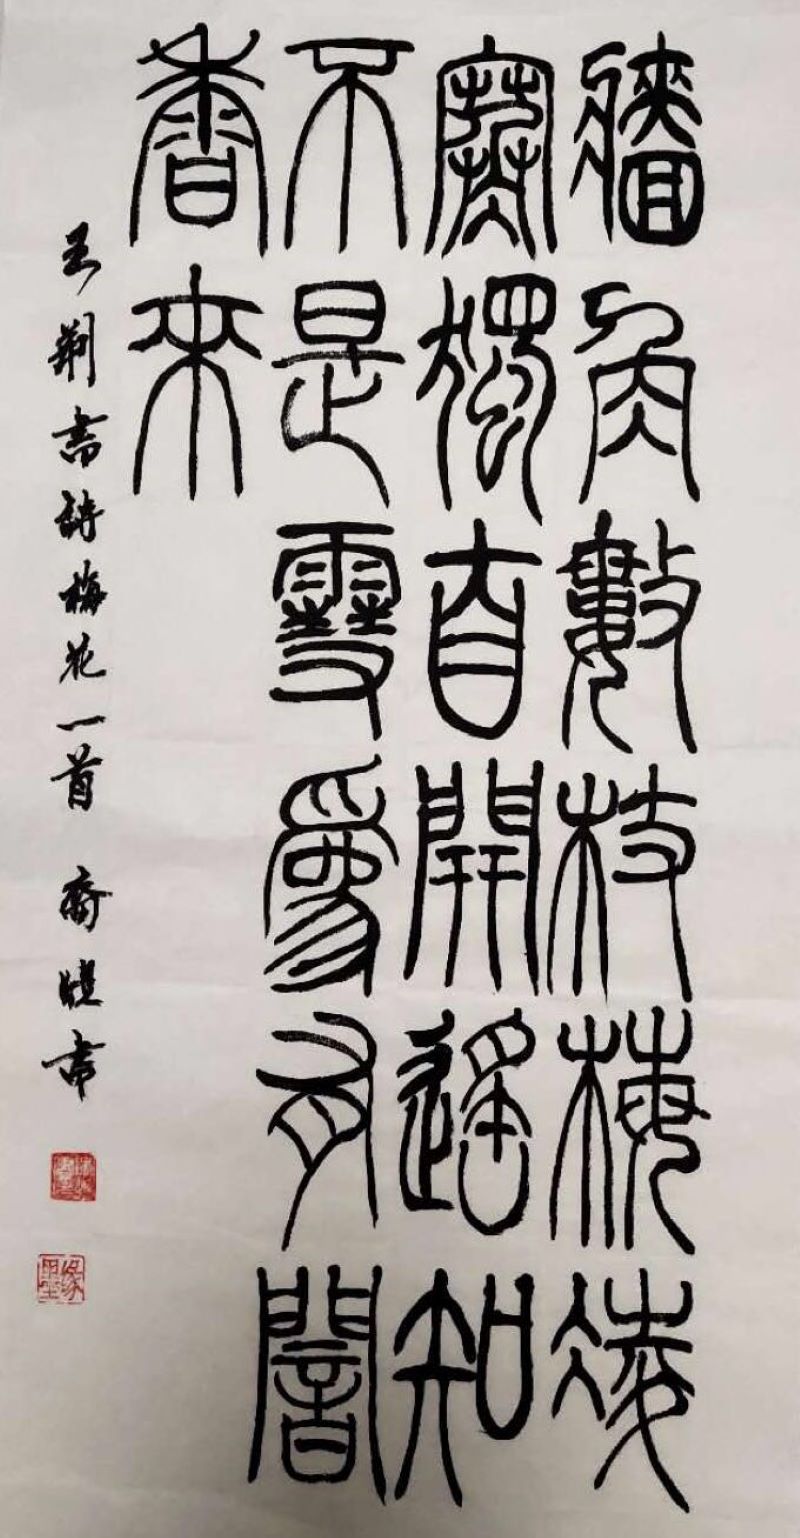 牆角數枝梅凌
寒獨自開遙知
不是雪爲有闇
香來
王荊 詩梅花一首 裔曉書